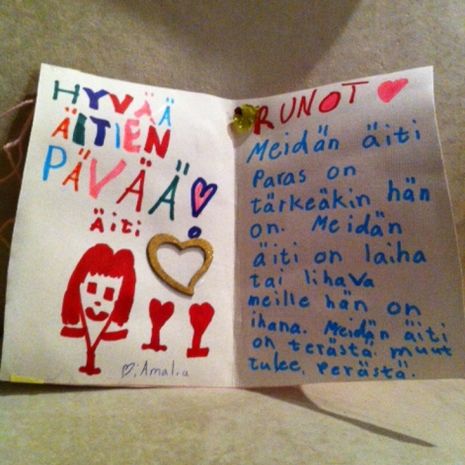 HYVÄÄ
ÄITIEN
PÄIVÄÄ
äiti
♡:Amalia
RUNOT
Meidän äiti
Paras on
tärkeäkin hän
on. Meidän
äiti on laiha
tai lihava
meille hän on
ihana. Meidän äiti
on terästä. muut
tulee, perästä.